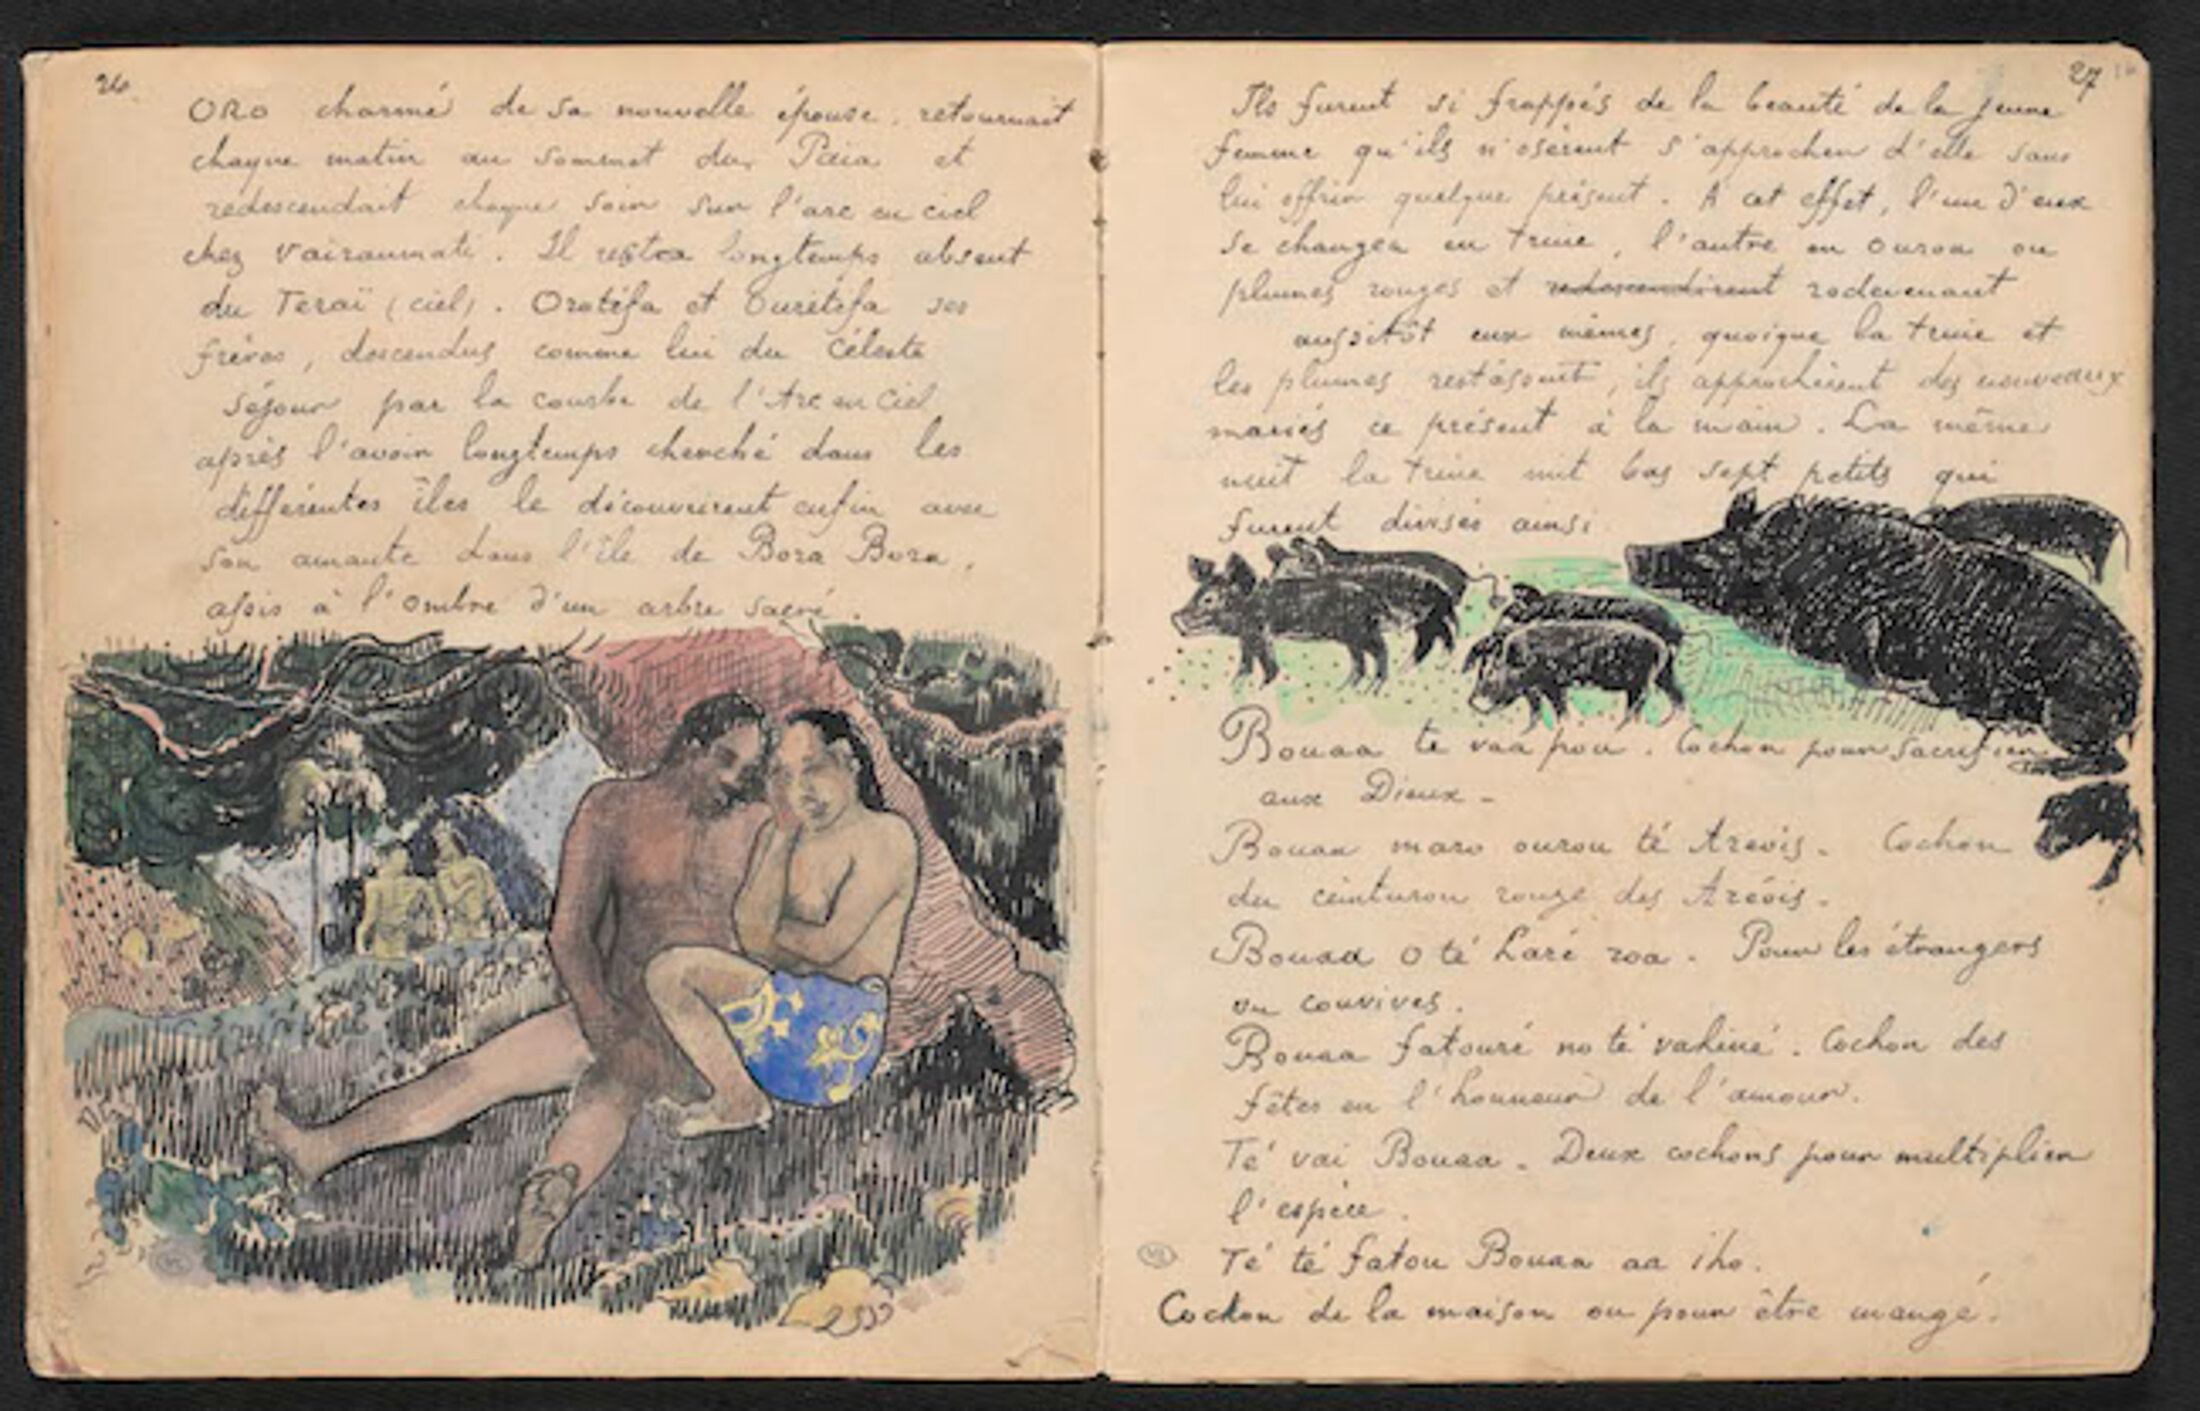 26
ORO charmé de sa nouvelle épouse, retournait
chaque matin au sommet du Païa et
redescendait chaque soir sur l'arc en ciel
chez Vaïraumati. Il resta longtemps absent
du Teraï (ciel). Orotéfa et Ourétéfa ses
frères, descendus comme lui du Céleste
séjour par la courbe de l'Arc en Ciel
après l'avoir longtemps cherché dans les
différentes îles le découvrirent enfin avec
son amante dans l'île de Bora Bora,
assis à l'ombre d'un arbre sacré.
27
Ils furent si frappés de la beauté de la jeune
femme qu'ils n'osèrent s'approcher d'elle sans
lui offrir quelque présent. A cet effet, l'un d'eux
se changea en truie, l'autre en ourou ou
plumes rouges et redescendirent redevenant
aussitôt eux mêmes, quoique la truie et
les plumes restassent, ils approchèrent des nouveaux
mariés ce présent à la main. La même
nuit la truie mit bas sept petits qui
furent divisés ainsi
Bouaa te vaa pou. Cochon pour sacrifier
aux Dieux -
Bouaa maro ourou té Areois - Cochon
du ceinturon rouge des Aréois -
Bouaa o té haré roa - Pour les étrangers
ou convives.
Bouaa fatouré no té vahiné. Cochon des
fêtes en l'honneur de l'amour.
Té vai Bouaa - Deux cochons pour multiplier
l'espèce.
Té té fatou Bouaa aa iho.
Cochon de la maison ou pour être mangé.